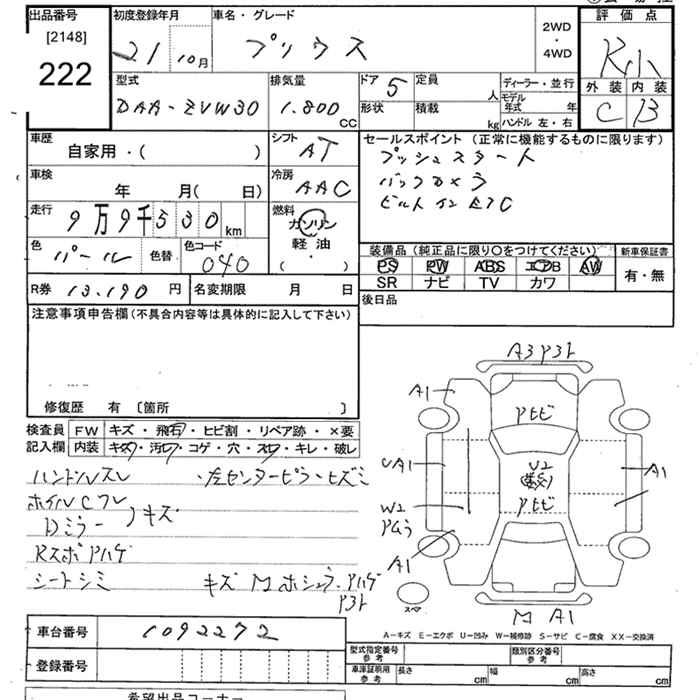 出品番号
[2148]
222
初度登録年月
21 10月
車名・グレード
プリウス
2WD
・
4WD
評価点
R小
外装 内装
C B
型式
DAA-ZVW30
排気量
1.800
CC
ドア 5
定員
人
形状
積載
kg
ディーラー・並行
モデル年式 年
ハンドル 左・右
車歴
自家用・( )
シフト
AT
車検
年 月( 日)
冷房
AAC
走行
9万9千530km
燃料
ガソリン
・
軽油
・
( )
色
パール
色替
色コード
040
R券 13.190 円
名変期限 月 日
セールスポイント(正常に機能するものに限ります)
プッシュスタート
バックカメラ
ビルトインETC
装備品(純正品に限り〇をつけてください)
PS PW ABS エアB AW
SR ナビ TV カワ
新車保証書
有・無
後日品
注意事項申告欄(不具合内容等は具体的に記入して下さい)
修復歴 有〔箇所 〕
検査員記入欄
FW キズ・飛石・ヒビ割・リペア跡・×要
内装 キズ・汚レ・コゲ・穴・スレ・キレ・破レ
ハンドルスレ ・左センターピラーヒズミ
ホイルCフレ
Dミラー キズ
RスポPハゲ
シートシミ
キズ Mホショウ・Pハゲ
P3ト
A3P3ト
A1
Pヒビ
UA1
U2
A1
W2
Pムラ
Pヒビ
A1
スペア
M A1
A-キズ E-エクボ U-凹み W-補修跡 S-サビ C-腐食 XX-交換済
車台番号 1092272
登録番号
型式指定番号
参考
類別区分番号
参考
車庫証明用
参考
長さ cm 幅 cm 高さ cm
希望出品コーナー